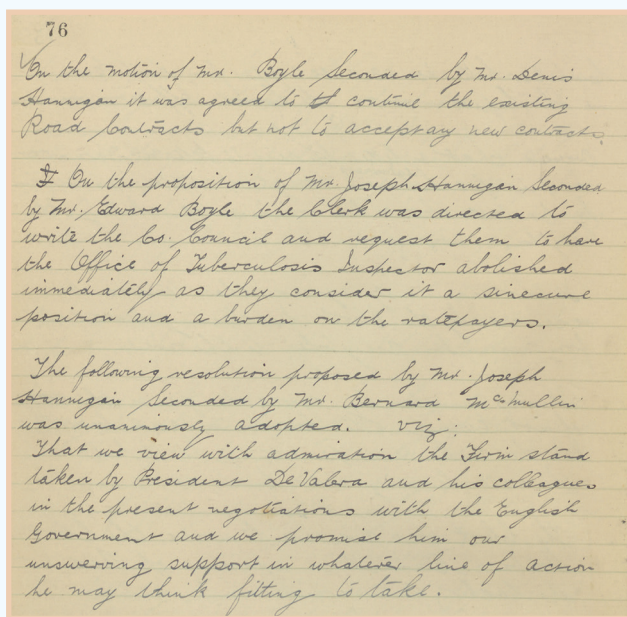 76
On the motion of Mr. Boyle Seconded by Mr. Denis
Hannigan it was agreed to continue the existing
Road Contracts but not to accept any new contracts.
On the proposition of Mr. Joseph Hannigan Seconded
by Mr. Edward Boyle the Clerk was directed to
write the Co. Council and request them to have
the Office of Tuberculosis Inspector abolished
immediately as they consider it a sinecure
position and a burden on the ratepayers.
The following resolution proposed by Mr. Joseph
Hannigan Seconded by Mr. Bernard McMullin
was unanimously adopted. Viz:
That we view with admiration the Firm stand
taken by President De Valera and his colleagues
in the present negotiations with the English
Government and we promise him our
unswerving support in whatever line of action
he may think fitting to take.